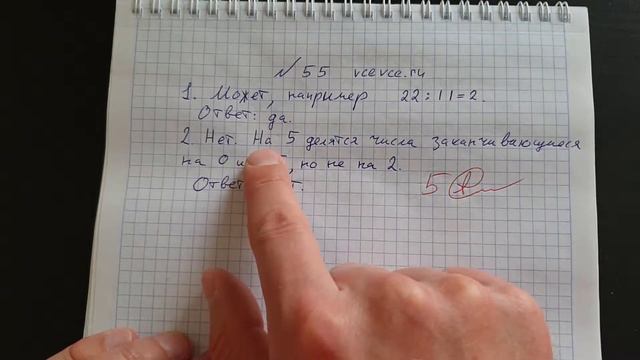 № 55 vcevce.ru
1. Может, например 22 : 11 = 2.
Ответ: да.
2. Нет. На 5 делятся числа заканчивающиеся
на 0 , но не на 2.
Ответ
5